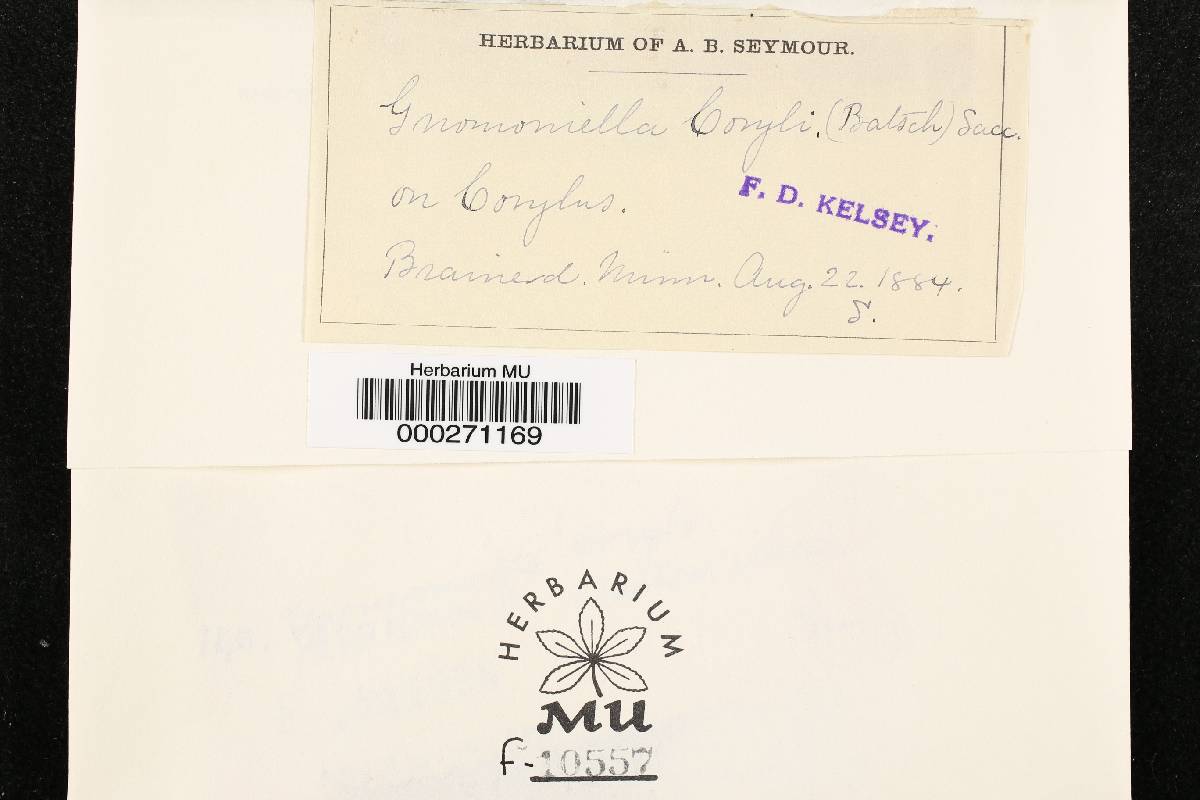 HERBARIUM OF A. B. SEYMOUR.
Gnomoniella Coryli. (Batsch) Sacc.
on Corylus.
F. D. KELSEY.
Brainerd. Minn. Aug. 22. 1884.
S.
Herbarium MU
000271169
HERBARIUM
MU
f-10557